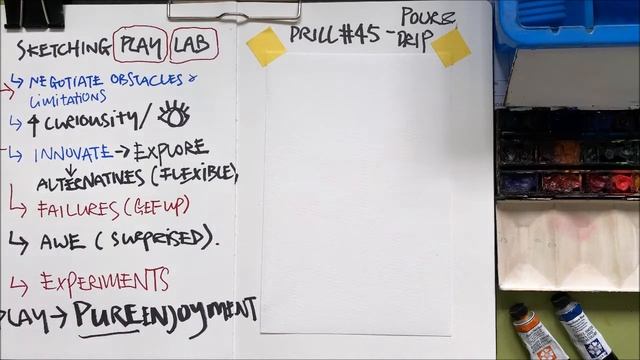 SKETCHING PLAY LAB
↳ NEGOTIATE OBSTACLES &
LIMITATIONS
↳ ↑ CURIOUSITY/
↳ INNOVATE → EXPLORE
ALTERNATIVES (FLEXIBLE)
↳ FAILURES (GET UP)
↳ AWE (SURPRISED).
↳ EXPERIMENTS
PLAY → PURE ENJOYMENT
DRILL #45 - POUR &
DRIP